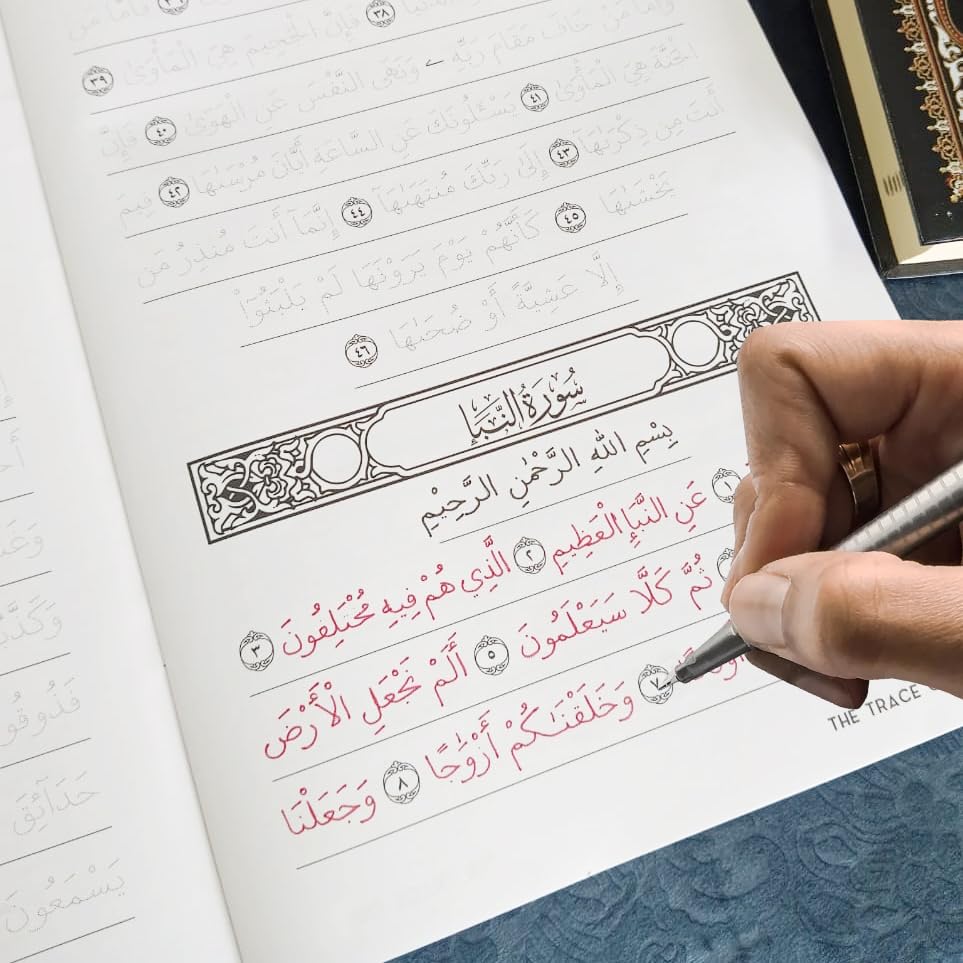 ٣٨ فَإِنَّ الْجَحِيمَ هِيَ الْمَأْوَىٰ ٣٩
وَأَمَّا مَنْ خَافَ مَقَامَ رَبِّهِۦ وَنَهَى النَّفْسَ عَنِ الْهَوَىٰ ٤٠ فَإِنَّ
الْجَنَّةَ هِيَ الْمَأْوَىٰ ٤١ يَسْـَٔلُونَكَ عَنِ السَّاعَةِ أَيَّانَ مُرْسَىٰهَا ٤٢ فِيمَ
أَنتَ مِن ذِكْرَىٰهَا ٤٣ إِلَىٰ رَبِّكَ مُنتَهَىٰهَا ٤٤ إِنَّمَا أَنتَ مُنذِرُ مَن
يَخْشَىٰهَا ٤٥ كَأَنَّهُمْ يَوْمَ يَرَوْنَهَا لَمْ يَلْبَثُوٓا۟
إِلَّا عَشِيَّةً أَوْ ضُحَىٰهَا ٤٦
سُورَةُ النَّبَإِ
بِسْمِ اللهِ الرَّحْمٰنِ الرَّحِيْمِ
١ عَنِ النَّبَإِ الْعَظِيمِ ٢ الَّذِي هُمْ فِيهِ مُخْتَلِفُونَ ٣
ثُمَّ كَلَّا سَيَعْلَمُونَ ٥ أَلَمْ نَجْعَلِ الْأَرْضَ
٧ وَخَلَقْنَٰكُمْ أَزْوَٰجًا ٨ وَجَعَلْنَا
THE TRACE
حَدَآئِقَ
يَسْمَعُونَ